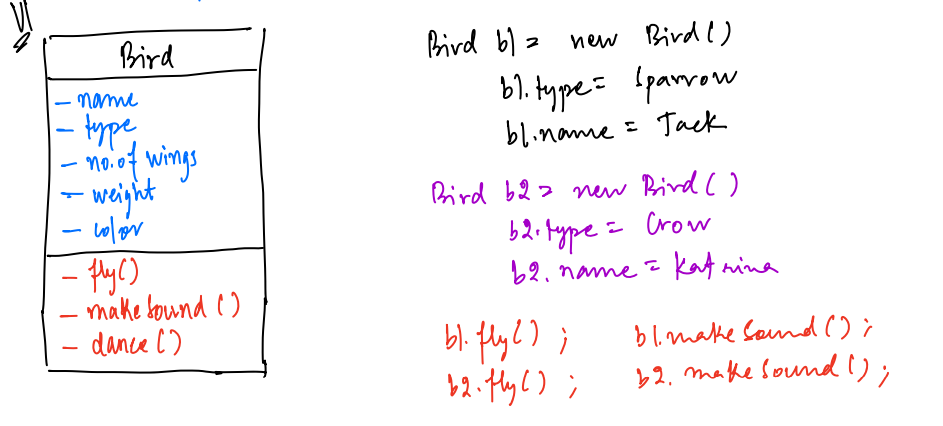 V1
Bird
- name
- type
- no. of wings
- weight
- color
- fly()
- makeSound()
- dance()
Bird b1 = new Bird()
b1.type = Sparrow
b1.name = Jack
Bird b2 = new Bird()
b2.type = Crow
b2.name = Katrina
b1.fly(); b1.makeSound();
b2.fly(); b2.makeSound();